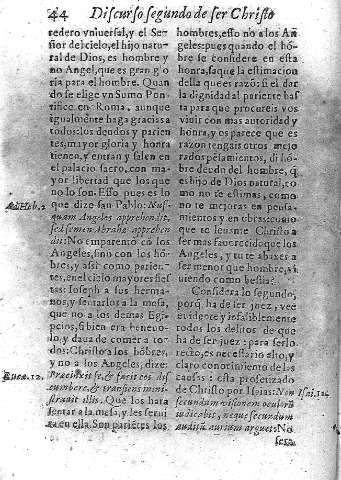 44 Discurso segundo de ser Christo
redero vniuersal, y el Se-
ñor del cielo, el hijo natu-
ral de Dios, es hombre y
no Angel, que es gran glo
ria para el hombre. Quan
do se elige vn Sumo Pon-
tifice en Roma, aunque
igualmente haga gracias a
todos: los deudos y parien
tes, mayor gloria y honra
tienen, y entran y salen en
el palacio sacro, con ma-
yor libertad que los que
no lo son. Esto pues es lo
que dize san Pablo: Nus-
quam Angelos apprehendit,
sed semen Abrahæ apprehen
dit: No emparentó con los
Angeles, sino con los hõ-
bres, y assi como parien-
tes, en el cielo mayores fies-
tas: Ioseph a sus herma-
nos, y sentarlos a la mesa,
que no a los demas Egip-
cios, si bien era beneuo-
lo, y daua de comer a to-
dos: Christo a los hõbres,
y no a los Angeles, dize:
Præcinxit se, & faciet eos dis
cumbere, & transiens mini-
strauit illis. Que los hara
sentar a la mesa, y les serui
ra en ella. Son pariẽtes los
Ad Heb. 2
Luca. 12.
hombres, esso no a los An
geles: pues quando el hõ-
bre se considere en esta
honra, saque la estimacion
della que es razõ: si el dar
la dignidad al pariente bas
ta para que procureis vos
viuir con mas autoridad y
honra, y os parece que es
razon tengais otros mejo
rados pẽsamientos, di hõ-
bre deudo del hombre, q̃
es hijo de Dios natural, co
mo no te estimas, como
no te mejoras en pensa-
mientos y en obras: como
que te leuante Christo a
ser mas fauorecido que los
Angeles, y tu te abaxes a
ser menor que hombre, vi
uiendo como bestia?
Considera lo segundo,
porq̃ ha de ser juez, vee
euidente y infaliblemente
todos los delitos de que
ha de ser juez: para serlo
recto, es necessario alto, y
claro conocimiento de las
causas: esta profetizado
de Christo por Isaias: Non
secundum visionem oculorũ
iudicabit, neque secundum
auditũ aurium arguet: No
Isai. 11.
sera